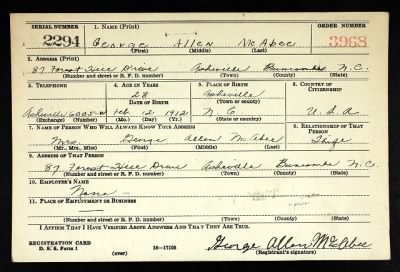 SERIAL NUMBER 1. NAME (Print) ORDER NUMBER
2294 George Allen McAbee 3968
(First) (Middle) (Last)
2. ADDRESS (Print)
87 Forest Hill Drive Asheville Buncombe N.C.
(Number and street or R. F. D. number) (Town) (County) (State)
3. TELEPHONE 4. AGE IN YEARS 5. PLACE OF BIRTH 6. COUNTRY OF CITIZENSHIP
28 Asheville
DATE OF BIRTH (Town or county)
Asheville Feb 12 1912 N C U.S.A
(Exchange) (Number) (Mo.) (Day) (Yr.) (State or country)
7. NAME OF PERSON WHO WILL ALWAYS KNOW YOUR ADDRESS 8. RELATIONSHIP OF THAT PERSON
Mrs. George Allen McAbee Wife
(Mr., Mrs., Miss) (First) (Middle) (Last)
9. ADDRESS OF THAT PERSON
87 Forest Hill Drive Asheville Buncombe N.C.
(Number and street or R. F. D. number) (Town) (County) (State)
10. EMPLOYER'S NAME
None -
11. PLACE OF EMPLOYMENT OR BUSINESS
(Number and street or R. F. D. number) (Town) (County) (State)
I AFFIRM THAT I HAVE VERIFIED ABOVE ANSWERS AND THAT THEY ARE TRUE.
REGISTRATION CARD
D. S. S. Form 1 16—17105 George Allen McAbee
(over) (Registrant's signature)